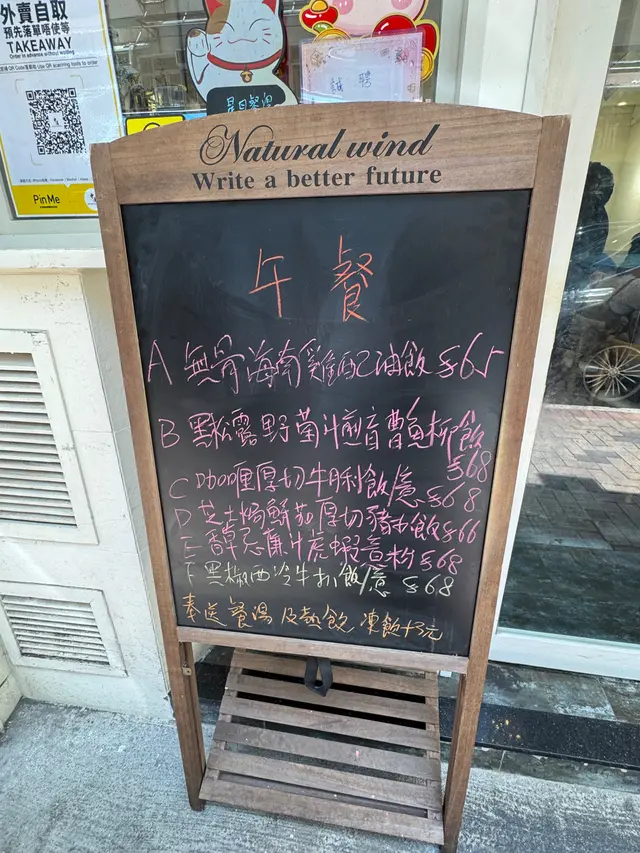 外賣自取
預先落單唔使等
TAKEAWAY
Order in advance without waiting
PinMe
誠 聘
Natural wind
Write a better future
午 餐
A 無骨海南雞配油飯 $65
B 黑松露野菌汁煎盲曹魚柳飯
$68
C 咖喱厚切牛脷飯/意 $68
D 芝士焗鮮茄厚切豬扒飯 $66
E 香草忌廉汁虎蝦意粉 $68
F 黑椒西冷牛扒飯/意 $68
奉送餐湯及熱飲 凍飲+3元